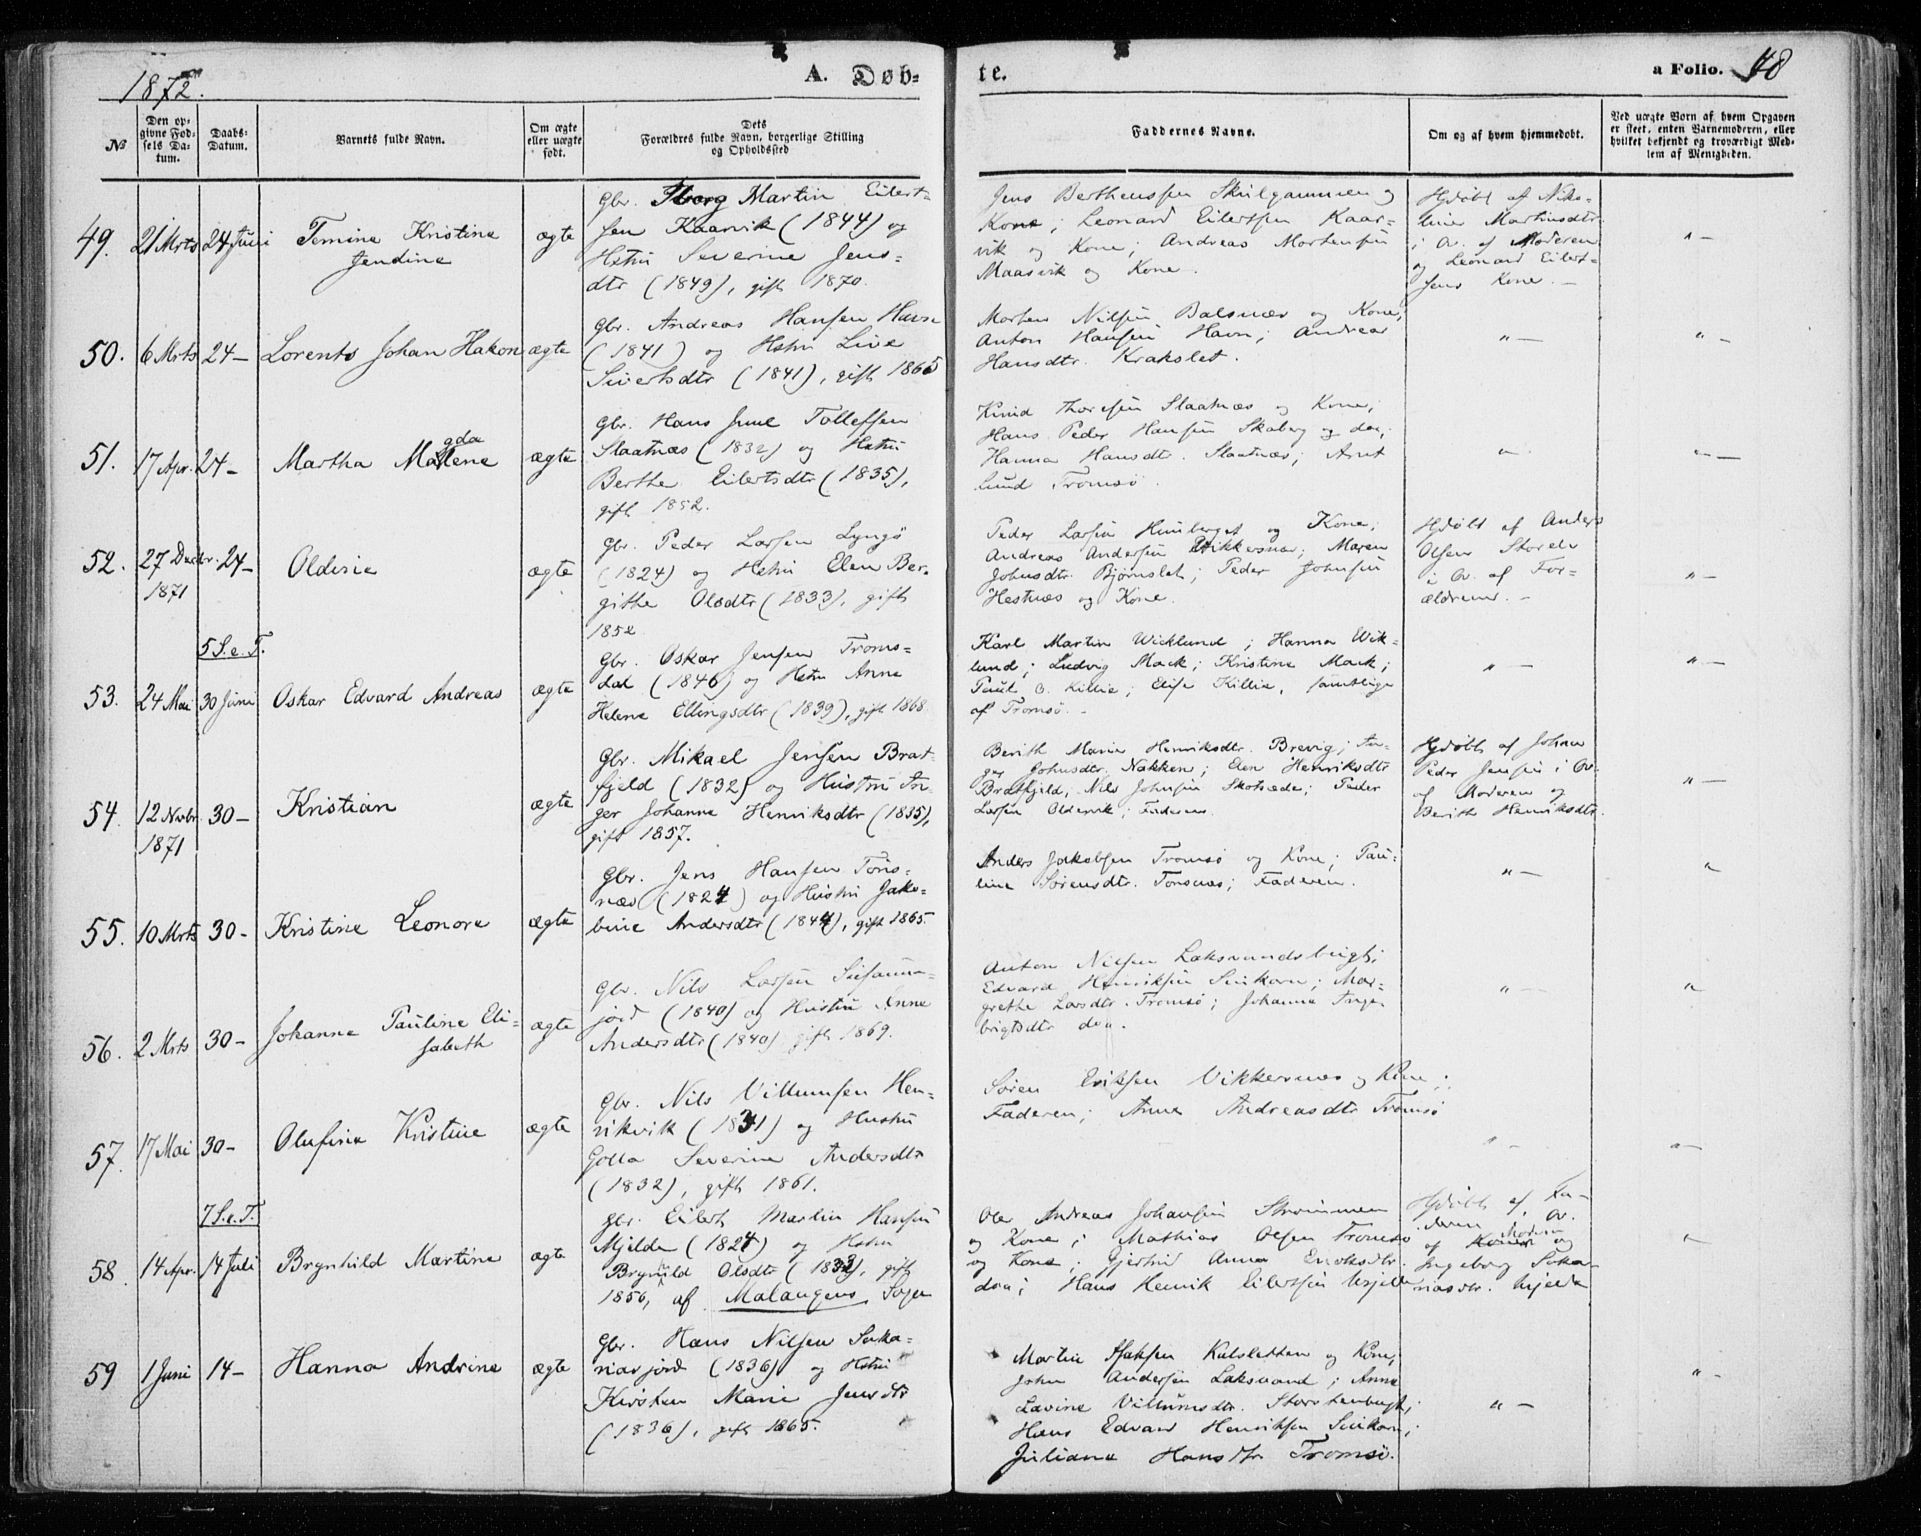 1872.
A. Døb-
te.
a Folio. 48
No
Den op-
givne Fød-
sels Da-
tum.
Daabs-
Datum.
Barnets fulde Navn.
Om ægte
eller uægte
født.
Dets
Forældres fulde Navn, borgerlige Stilling
og Opholdssted
Faddernes Navne.
Om og af hvem hjemmedøbt.
Ved uægte Born af hvem Opgaven
er skeet, enten Barnemoderen, eller
hvilket bekjendt og troværdigt Med-
lem af Menigheden.
49. 21 Mrts 24 Juni Temina Kristine
Jendine
ægte
Gbr. Martin Eilert-
sen Kaarvik (1844) og
Hstru Severine Jens-
dtr (1849), gift 1870.
Jens Berthenssen Skulgammen og
Kone; Leonard Eilertsen Kaar-
vik og Kone; Andreas Mortensen
Maasvik og Kone.
Hjdøbt af Nik-
line Martinsdtr
i Ov. af Moderen
og Leonard Eilert-
sens Kone. -
" -
50. 6 Mrts 24 - Lorents Johan Hakon ægte
Gbr. Andreas Hansen Havn
(1841) og Hstru Live
Sivertsdtr (1841), gift 1865
Morten Nilsen Balsnær og Kone;
Anton Hansen Havn; Andrea
Hansdtr. Krakslet.
" -
" -
51. 17 Apr. 24 - Martha Magdalene ægte
Gbr. Hans June Tollefsen
Slaatnæs (1832) og Hstru
Berthe Eilertsdtr (1835),
gift 1852.
Knud Thoresen Slaatnæs og Kone;
Hans Peder Hansen Skaberg og do;
Hanna Hansdtr. Slaatnæs; Arnt
Lund Tromsø.
" -
" -
52. 27 Decbr. 24 - Oldine ægte
1871
Gbr. Peder Larsen Lyngø
(1824) og Hstru Elen Ber-
githe Olsdtr (1833), gift
1852
Peder Larsen Hunberget og Kone;
Andreas Andersen Vikkersnæs; Maren
Johnsdtr. Bjørnslet; Peder Johnsen
Hestnæs og Kone.
Hjdøbt af Anders
Olsen Storelv
i Ov. af For-
ældrene. -
" -
5 S. e. T.
53. 24 Mai 30 Juni Oskar Edvard Andreas ægte
Gbr. Oskar Jensen Troms-
dal (1846) og Hstru Anne
Helene Ellingsdtr (1839), gift 1868
Karl Martin Wicklund; Hanna Wik-
lund; Ludvig Mack; Kristine Mack;
Paul O. Killie; Elise Killie, samtlige
af Tromsø. -
" -
" -
54. 12 Novbr. 30 - Kristian ægte
1871
Gbr. Mikael Jensen Brat-
fjeld (1832) og Hustru In-
ger Johanne Henriksdtr (1835),
gift 1857.
Berith Marie Henriksdtr. Brevig; In-
ger Johnsdtr. Nakken; Elen Henriksdtr
Bratfjeld, Nils Johnsen Skotsæde; Peder
Larsen Oldervik; Faderen.
Hjdøbt af Johan
Peder Jensen i Ov.
af Moderen og
Berith Henriksdtr.
" -
55. 10 Mrts 30 - Kristine Leonore ægte
Gbr. Jens Hansen Tøns-
næs (1824) og Hustru Jako-
bine Andersdtr (1844), gift 1865.
Anders Jakobsen Tromsø og Kone; Pau-
line Sørensdtr. Tønsnæs; Faderen.
" -
"
56. 2 Mrts 30 - Johanne Pauline Eli-
sabeth
ægte
Gbr. Nils Larsen
jord (1840) og Hustru Anne
Andersdtr (1840) gift 1869.
Anton Nilsen Laksvandsbugt;
Edvard Henriksen Seikorn; Mar-
grethe Larsdtr. Tromsø; Johanna Inge-
brigtsdtr doa.
" -
"
57. 17 Mai 30 - Olufine Kristine ægte
Gbr. Nils Villumsen Hen-
rikvik (1831) og Hustru
Golla Severine Andersdtr
(1832), gift 1861.
Søren Eriksen Vikkersnæs og Kone;
Faderen; Anne Andreasdtr Tromsø
" -
" -
7 S. e. T.
58. 14 Apr. 14 Juli Brynhild Martine ægte
Gbr. Eilert Martin Hansen
Mjelde (1824) og Hstru
Brynhild Olsdtr (1832), gift
1850, af Malangens Sogn
Ole Andreas Johansen Strømmen
og Kone; Mathias Olsen Tromsø
og Kone; Gjertrud Anna Enoksdtr.
doa; Hans Henrik Eilertsen Mjelde
Hjdøbt af Fa-
deren i Ov.
af Moderen og
Ingeborg Saka-
riasdtr. Mjelde
"
59 1 Juni 14 - Hanna Andrine ægte
Gbr. Hans Nilsen Saka-
riasjord (1836) og Hstru
Kirsten Marie Jensdtr
(1836), gift 1865.
Martin Isaksen Kalsletten og Kone;
John Andersen Laksvand; Anne
Lavine Villumsdtr. Storstenbugt;
Hans Edvard Henriksen Seikorn;
Juliane Hansdtr Tromsø.
" -
" -